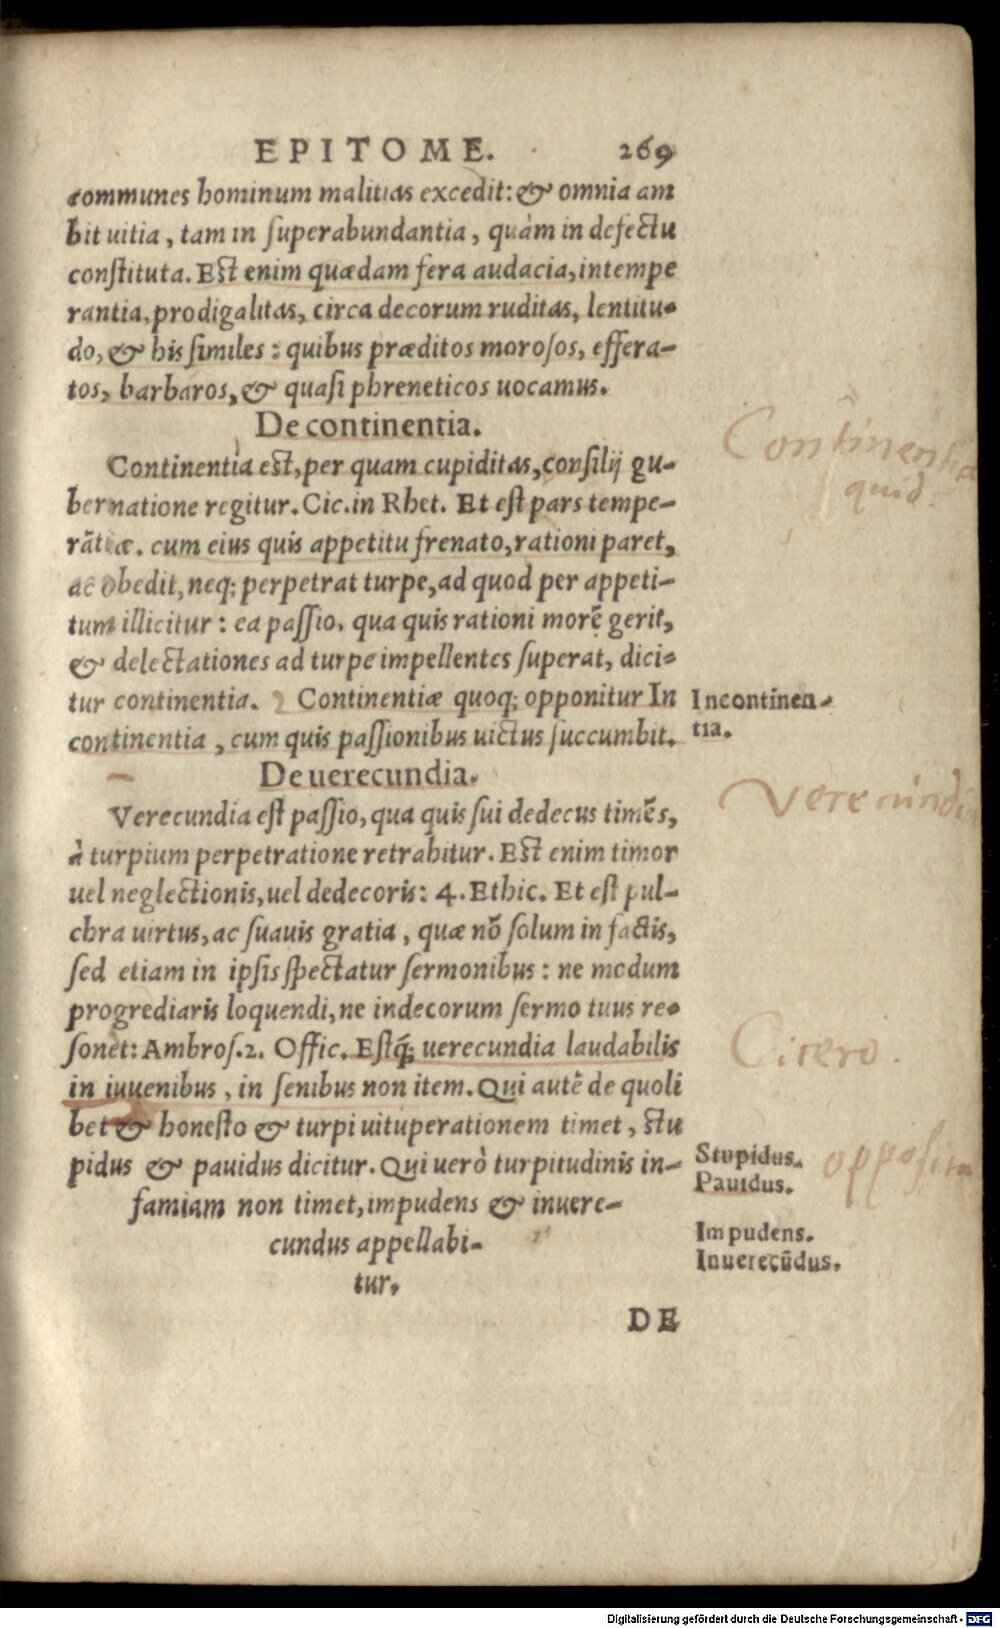 EPITOME. 269
communes hominum malitias excedit: & omnia am
bit uitia, tam in superabundantia, quàm in defectu
constituta. Est enim quædam fera audacia, intempe
rantia, prodigalitas, circa decorum ruditas, lentitu-
do, & his similes: quibus præditos morosos, effera-
tos, barbaros, & quasi phreneticos uocamus.
De continentia.
Continentia est, per quam cupiditas, consilij gu-
bernatione regitur. Cic. in Rhet. Et est pars tempe-
rãtiæ. cum eius quis appetitu frenato, rationi paret,
ac obedit, neq; perpetrat turpe, ad quod per appeti-
tum illicitur: ea passio, qua quis rationi morẽ gerit,
& delectationes ad turpe impellentes superat, dici-
tur continentia. Continentiæ quoq; opponitur In
continentia, cum quis passionibus uictus succumbit.
De uerecundia.
Verecundia est passio, qua quis sui dedecus timẽs,
à turpium perpetratione retrahitur. Est enim timor
uel neglectionis, uel dedecoris: 4. Ethic. Et est pul-
chra uirtus, ac suauis gratia, quæ nõ solum in factis,
sed etiam in ipsis spectatur sermonibus: ne modum
progrediaris loquendi, ne indecorum sermo tuus re-
sonet: Ambros. 2. Offic. Estq́; uerecundia laudabilis
in iuuenibus, in senibus non item. Qui autẽ de quoli
bet & honesto & turpi uituperationem timet, stu
pidus & pauidus dicitur. Qui uerò turpitudinis in-
famiam non timet, impudens & inuere-
cundus appellabi-
tur.
DE
Continentia
quid.
Incontinen-
tia.
Verecundia
Cicero.
Stupidus.
Pauidus.
opposita
Impudens.
Inuerecũdus.
Digitalisierung gefördert durch die Deutsche Forschungsgemeinschaft - DFG